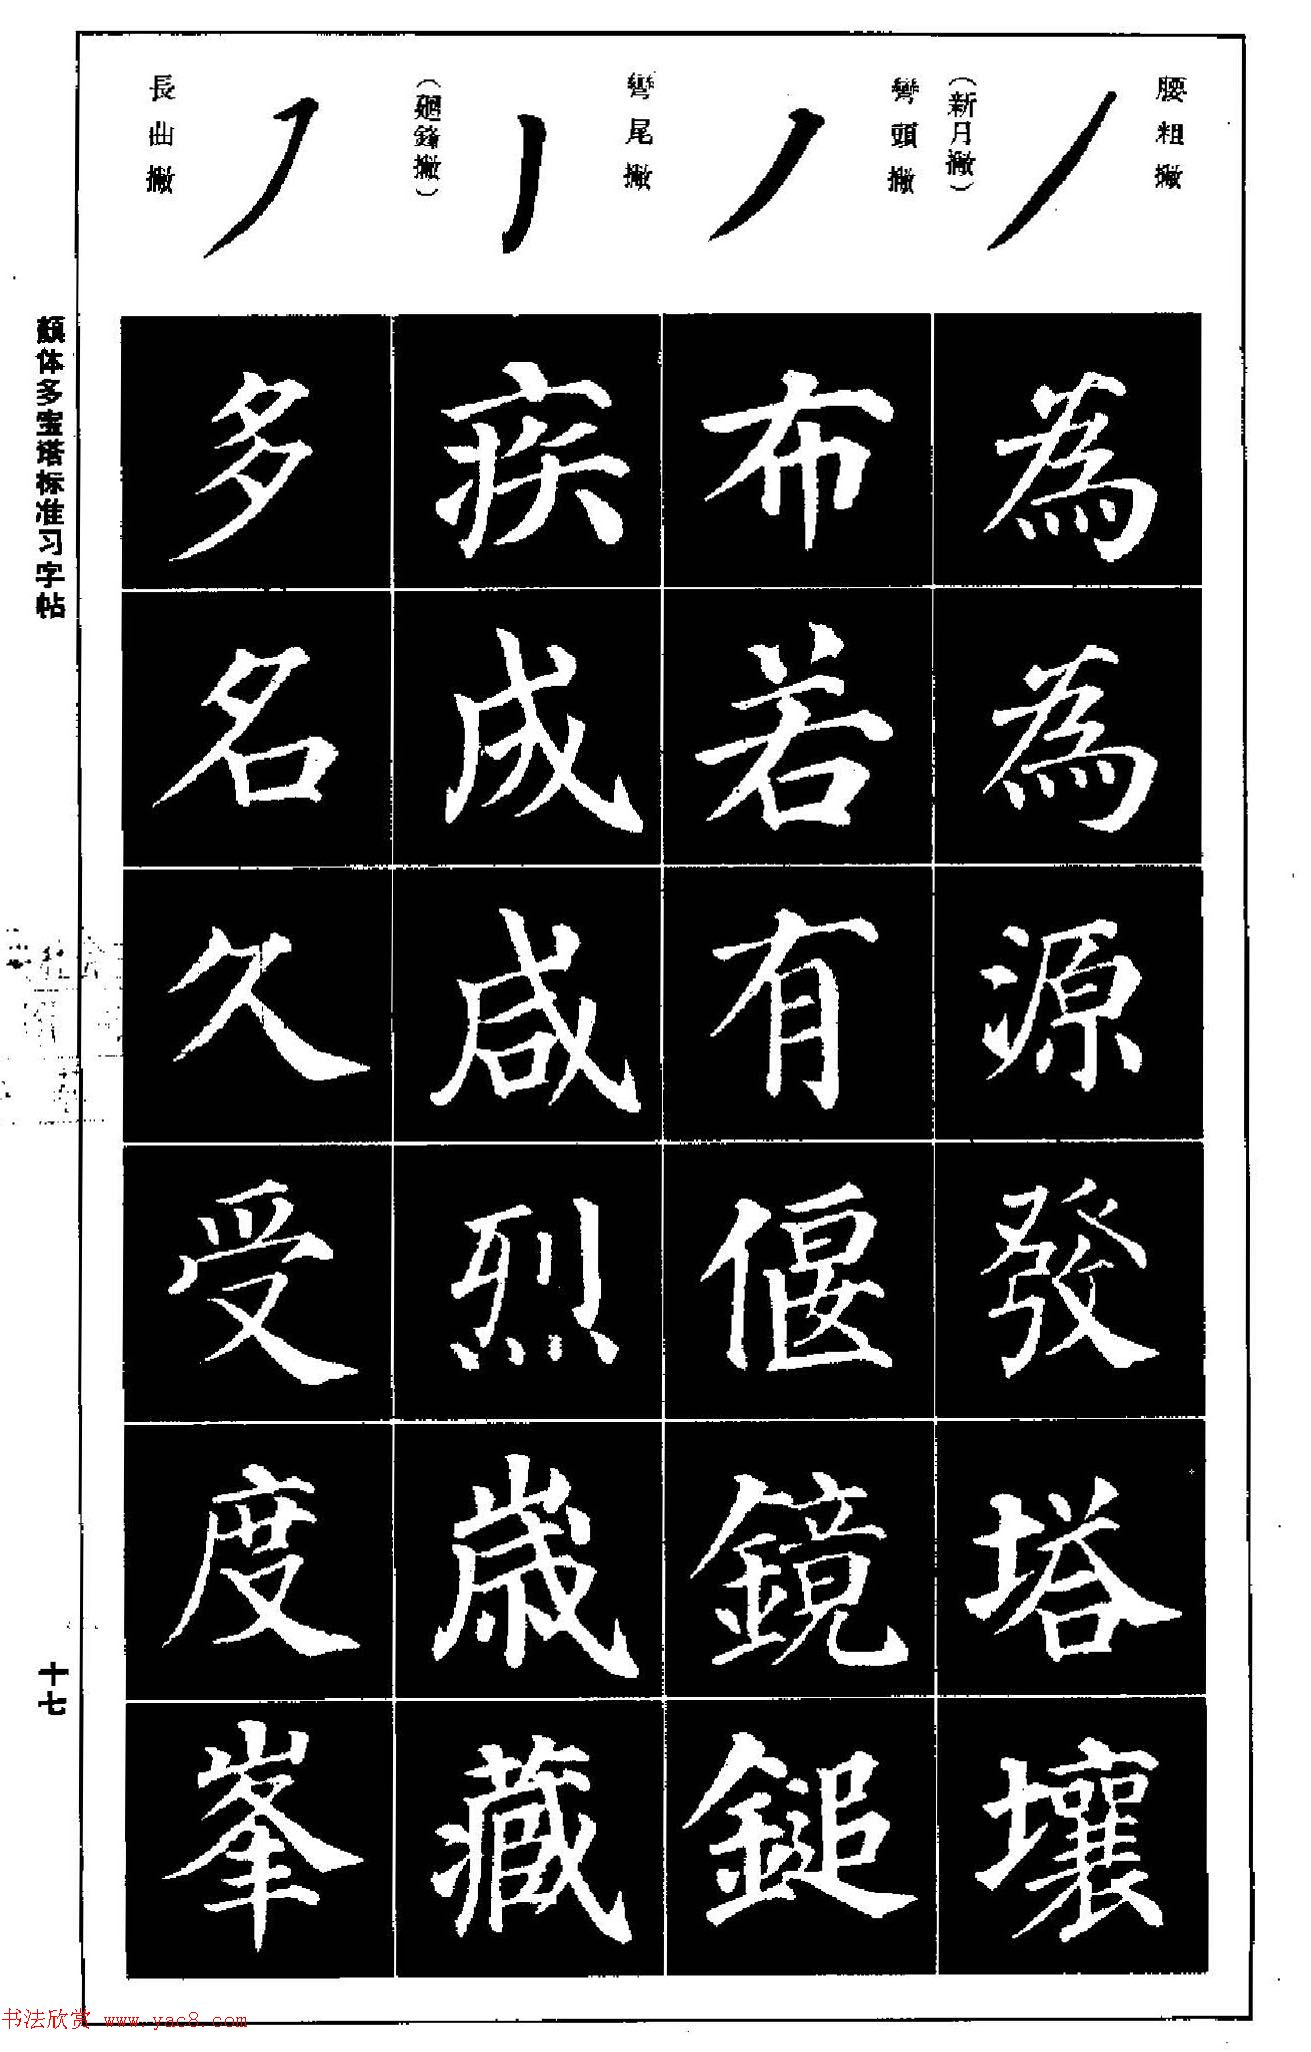 腰粗撇
（新月撇）
彎頭撇
彎尾撇
（廻鋒撇）
長曲撇
為為源發塔壤
布若有偃鏡鎚
疾成咸烈歲藏
多名久受度峯
顏体多宝塔标准习字帖
十七
书法欣赏 www.yac8.com